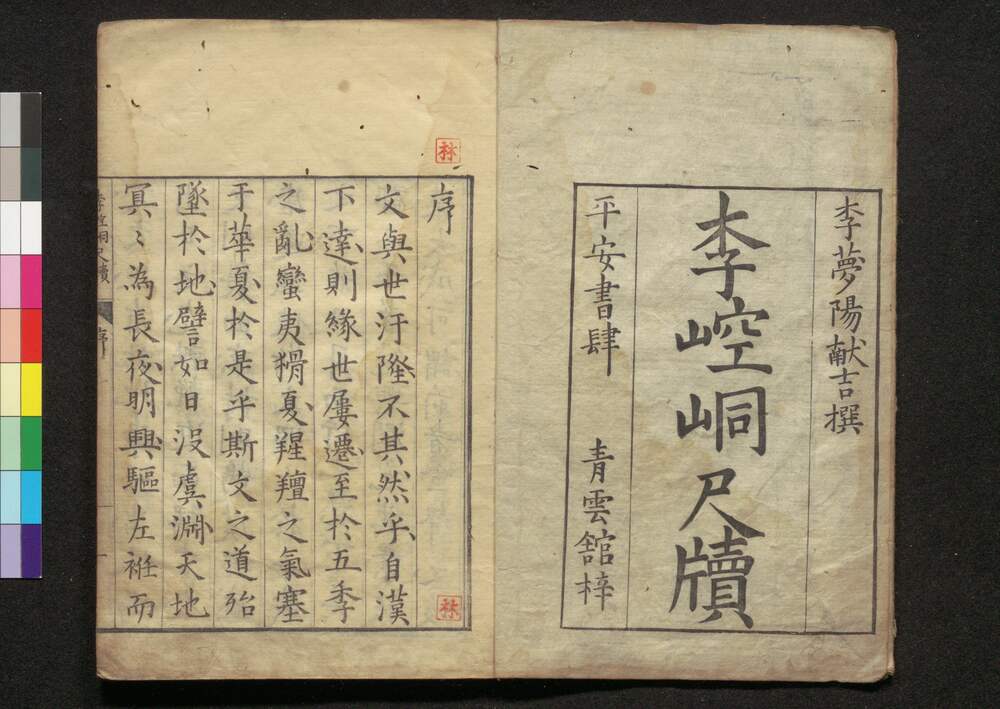 李夢陽献吉撰
李崆峒尺牘
平安書肆 青雲舘梓
序
文與世汙隆不其然乎自漢
下達則緣世屢遷至於五季
之亂蠻夷猾夏羶之氣塞
于華夏於是乎斯文之道殆
墜於地譬如日没虞淵天地
冥〻為長夜明興驅左袵而
李崆峒尺牘 序 一